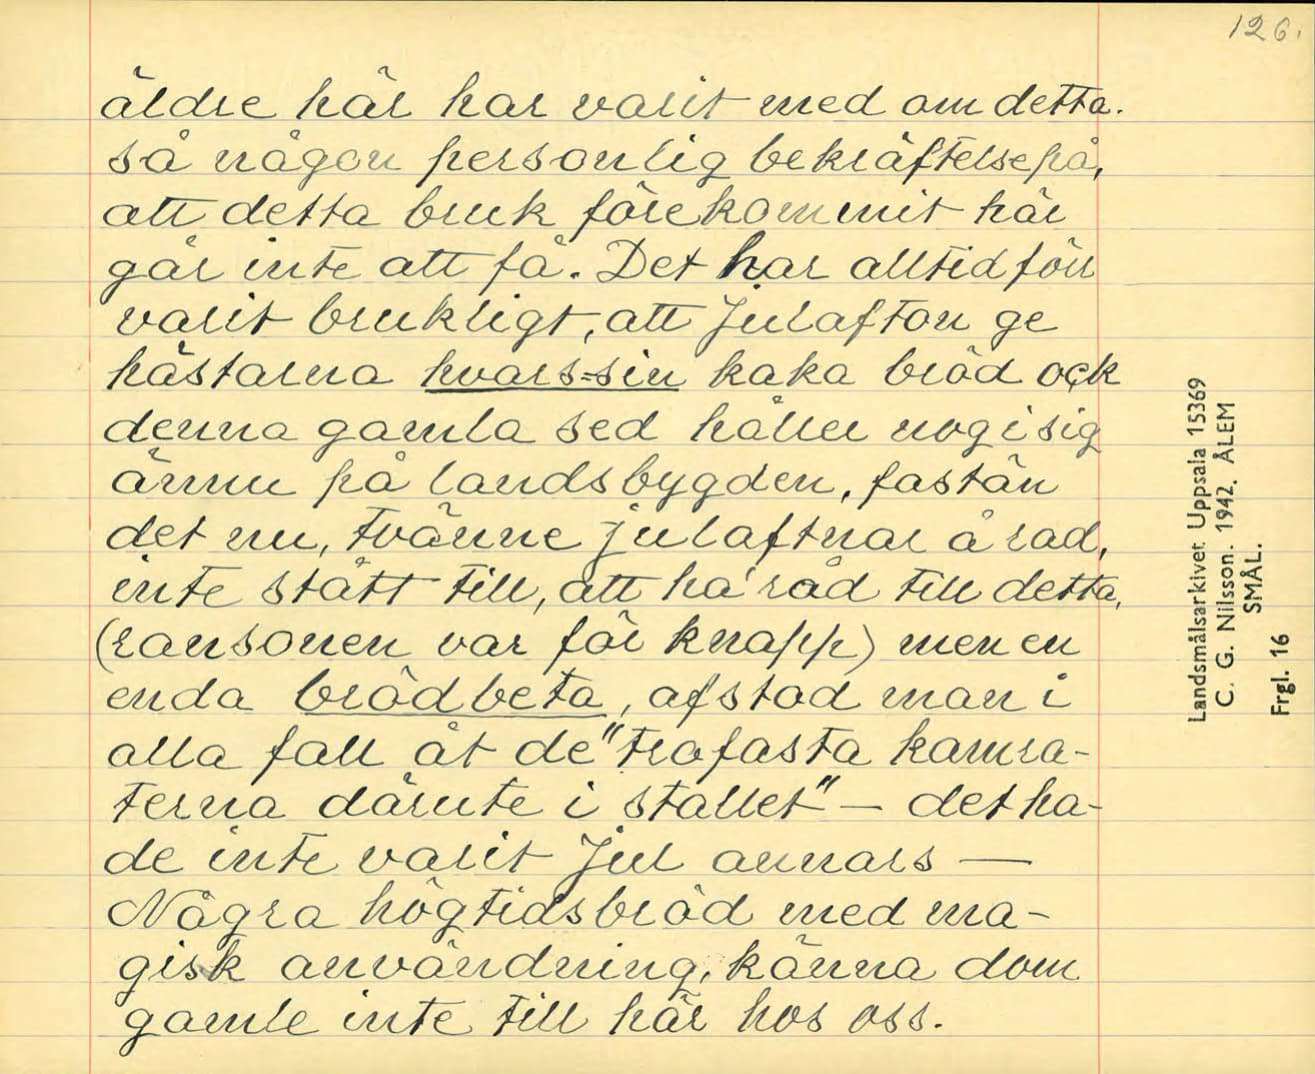 126.
äldre här har varit med om detta.
så någon personlig bekräftelse på,
att detta bruk förekommit här
går inte att få. Det har alltid förr
varit brukligt, att Julafton ge
hästarna hvars=sin kaka bröd ock
denna gamla sed håller nog i sig
ännu på landsbygden, fastän
det nu, tvänne julaftnar å rad,
inte stått till, att ha' råd till detta,
(ransonen var för knapp) men en
enda brödbeta, afstod man i
alla fall åt de "trofasta kamra-
terna därute i stallet" — det ha-
de inte varit Jul annars —
Några högtidsbröd med ma-
gisk användning, känna dom
gamle inte till här hos oss.
Landsmålsarkivet Uppsala 15369
C. G. Nilsson. 1942. ÅLEM
SMÅL.
Frgl. 16